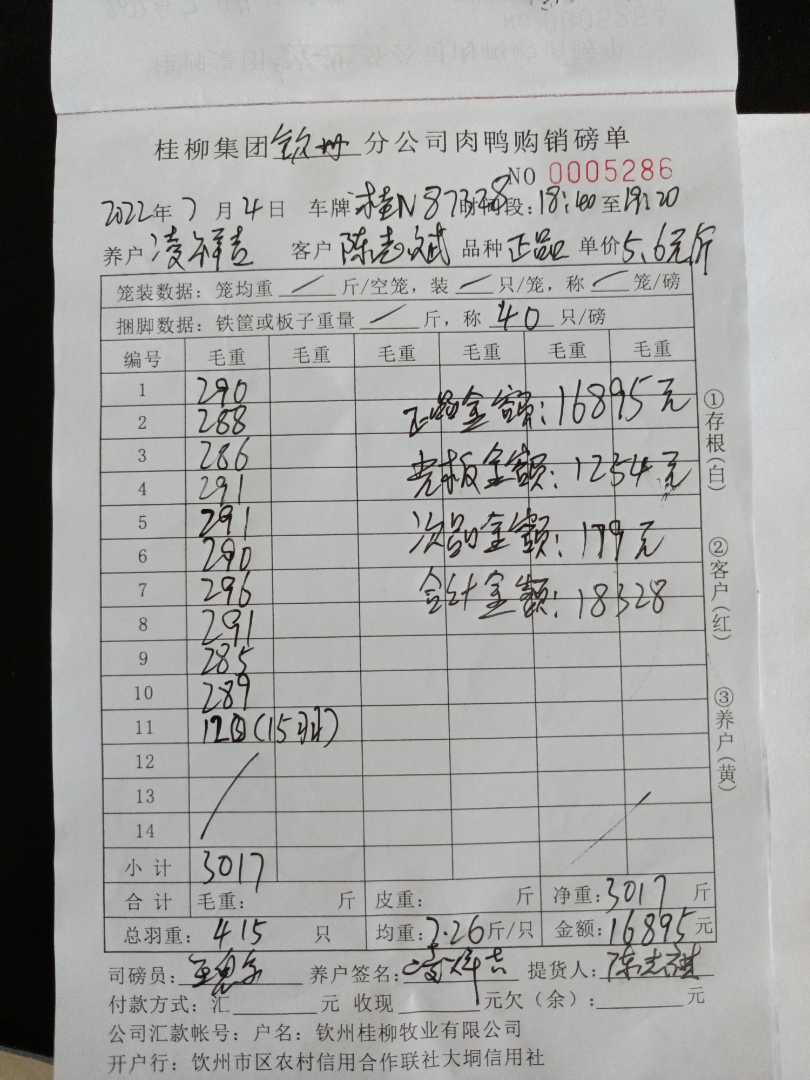 桂柳集团钦州分公司肉鸭购销磅单
NO 0005286
2022年7月4日 车牌桂N87328时间段:18:40至19:20
养户凌祥吉 客户陈志斌 品种正品 单价5.6元/斤
笼装数据:笼均重/斤/空笼,装/只/笼,称/笼/磅
捆脚数据:铁筐或板子重量/斤,称40只/磅
编号 毛重 毛重 毛重 毛重 毛重 毛重
1 290
正品金额:16895元
2 288
3 286
光板金额:1254元
4 291
5 291
次品金额:179元
6 290
7 296
合计金额:18328
8 291
9 285
10 289
11 (15羽)
12
13
14
小计 3017
合计 毛重: 斤 皮重: 斤 净重:3017斤
总羽重:415只 均重:7.26斤/只 金额:16895元
司磅员: 养户签名:凌祥吉 提货人:陈志斌
付款方式:汇 元 收现 元欠(余): 元
公司汇款帐号:户名:钦州桂柳牧业有限公司
开户行:钦州市区农村信用合作联社大垌信用社
①存根(白)
②客户(红)
③养户(黄)